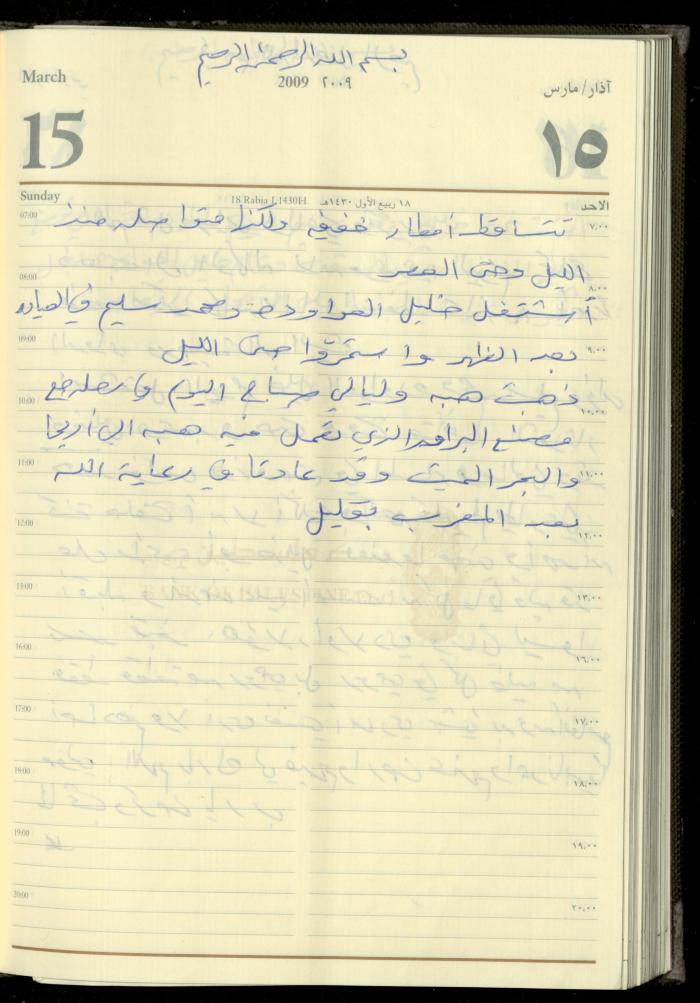 بسم الله الرحمن الرحيم
March
2009 ٢٠٠٩
آذار/مارس
15
١٥
Sunday
18 Rabia I,1430H ١٨ ربيع الأول ١٤٣٠هـ
الاحد
07:00 ٧,٠٠
تتساقط أمطار خفيفه ولكنها متواصله منذ
الليل وحتى العصر
08:00 ٨,٠٠
أشتغل خليل العواودة ومحمد سليم في العياده
09:00 ٩,٠٠
بعد الظهر واستمرّوا حتى الليل
ذهبت هبه وليالي صباح اليوم في رحله مع
10:00 ١٠,٠٠
مصنع البرامد الذي تعمل فيه هبه الى أريحا
11:00 ١١,٠٠
والبحر الميت وقد عادتا في رعاية الله
بعد المغرب بقليل
12:00 ١٢,٠٠
13:00 ١٣,٠٠
16:00 ١٦,٠٠
17:00 ١٧,٠٠
18:00 ١٨,٠٠
19:00 ١٩,٠٠
20:00 ٢٠,٠٠